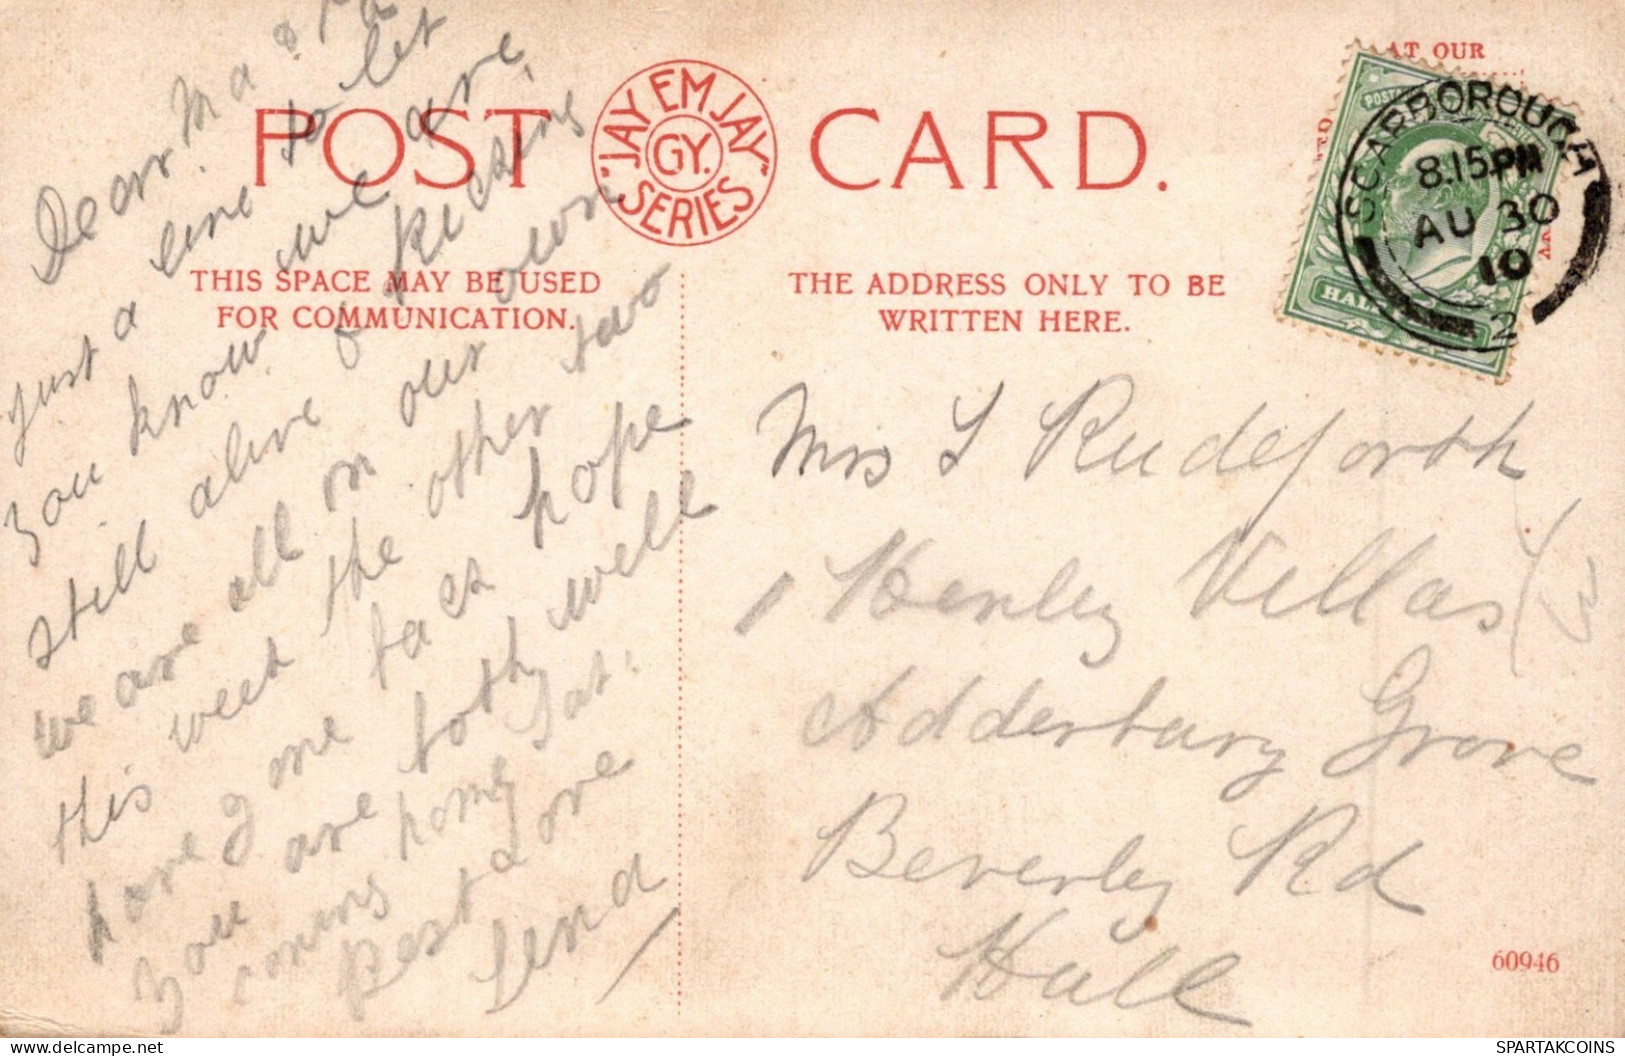 Dear Ma & Pa
Just a line to let
you know we are
still alive & kicking
we are all on our own
this week the other two
have gone back hope
you are both well
coming home Sat.
Best Love
Lena
POST CARD.
"JAY EM JAY" SERIES
GY.
THIS SPACE MAY BE USED
FOR COMMUNICATION.
THE ADDRESS ONLY TO BE
WRITTEN HERE.
AT OUR
SCARBOROUGH
8.15PM
AU 30
10
2
Mrs S Rudeforth
1 Henley Villas
Adderbury Grove
Beverley Rd
Hull
60946
SPARTAKCOINS
delcampe.net